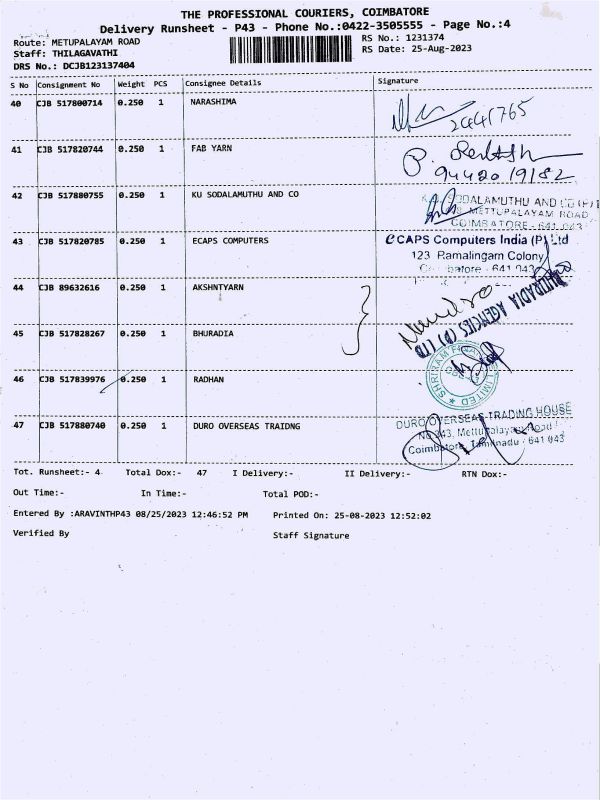 THE PROFESSIONAL COURIERS, COIMBATORE
Delivery Runsheet - P43 - Phone No.:0422-3505555 - Page No.:4
Route: METUPALAYAM ROAD
RS No.: 1231374
Staff: THILAGAVATHI
RS Date: 25-Aug-2023
DRS No.: DCJB123137404
S No Consignment No Weight PCS Consignee Details Signature
40 CJB 517800714 0.250 1 NARASHIMA
41 CJB 517820744 0.250 1 FAB YARN
94420 19182
42 CJB 517880755 0.250 1 KU SODALAMUTHU AND CO
SODALAMUTHU AND CO (P)
METTUPALAYAM ROAD
COIMBATORE - 641 043
43 CJB 517820785 0.250 1 ECAPS COMPUTERS
eCAPS Computers India (P) Ltd
123 Ramalingam Colony
641 043
44 CJB 89632616 0.250 1 AKSHNTYARN
BHURADIA AGENCIES (P) LTD
45 CJB 517828267 0.250 1 BHURADIA
46 CJB 517839976 0.250 1 RADHAN
SHRIRAM LIMITED
47 CJB 517880740 0.250 1 DURO OVERSEAS TRAIDNG
DURO OVERSEAS TRADING HOUSE
No 343, Mettupalayam Road
Coimbatore, Tamilnadu - 641 043
Tot. Runsheet:- 4 Total Dox:- 47 I Delivery:- II Delivery:- RTN Dox:-
Out Time:- In Time:- Total POD:-
Entered By :ARAVINTHP43 08/25/2023 12:46:52 PM Printed On: 25-08-2023 12:52:02
Verified By Staff Signature